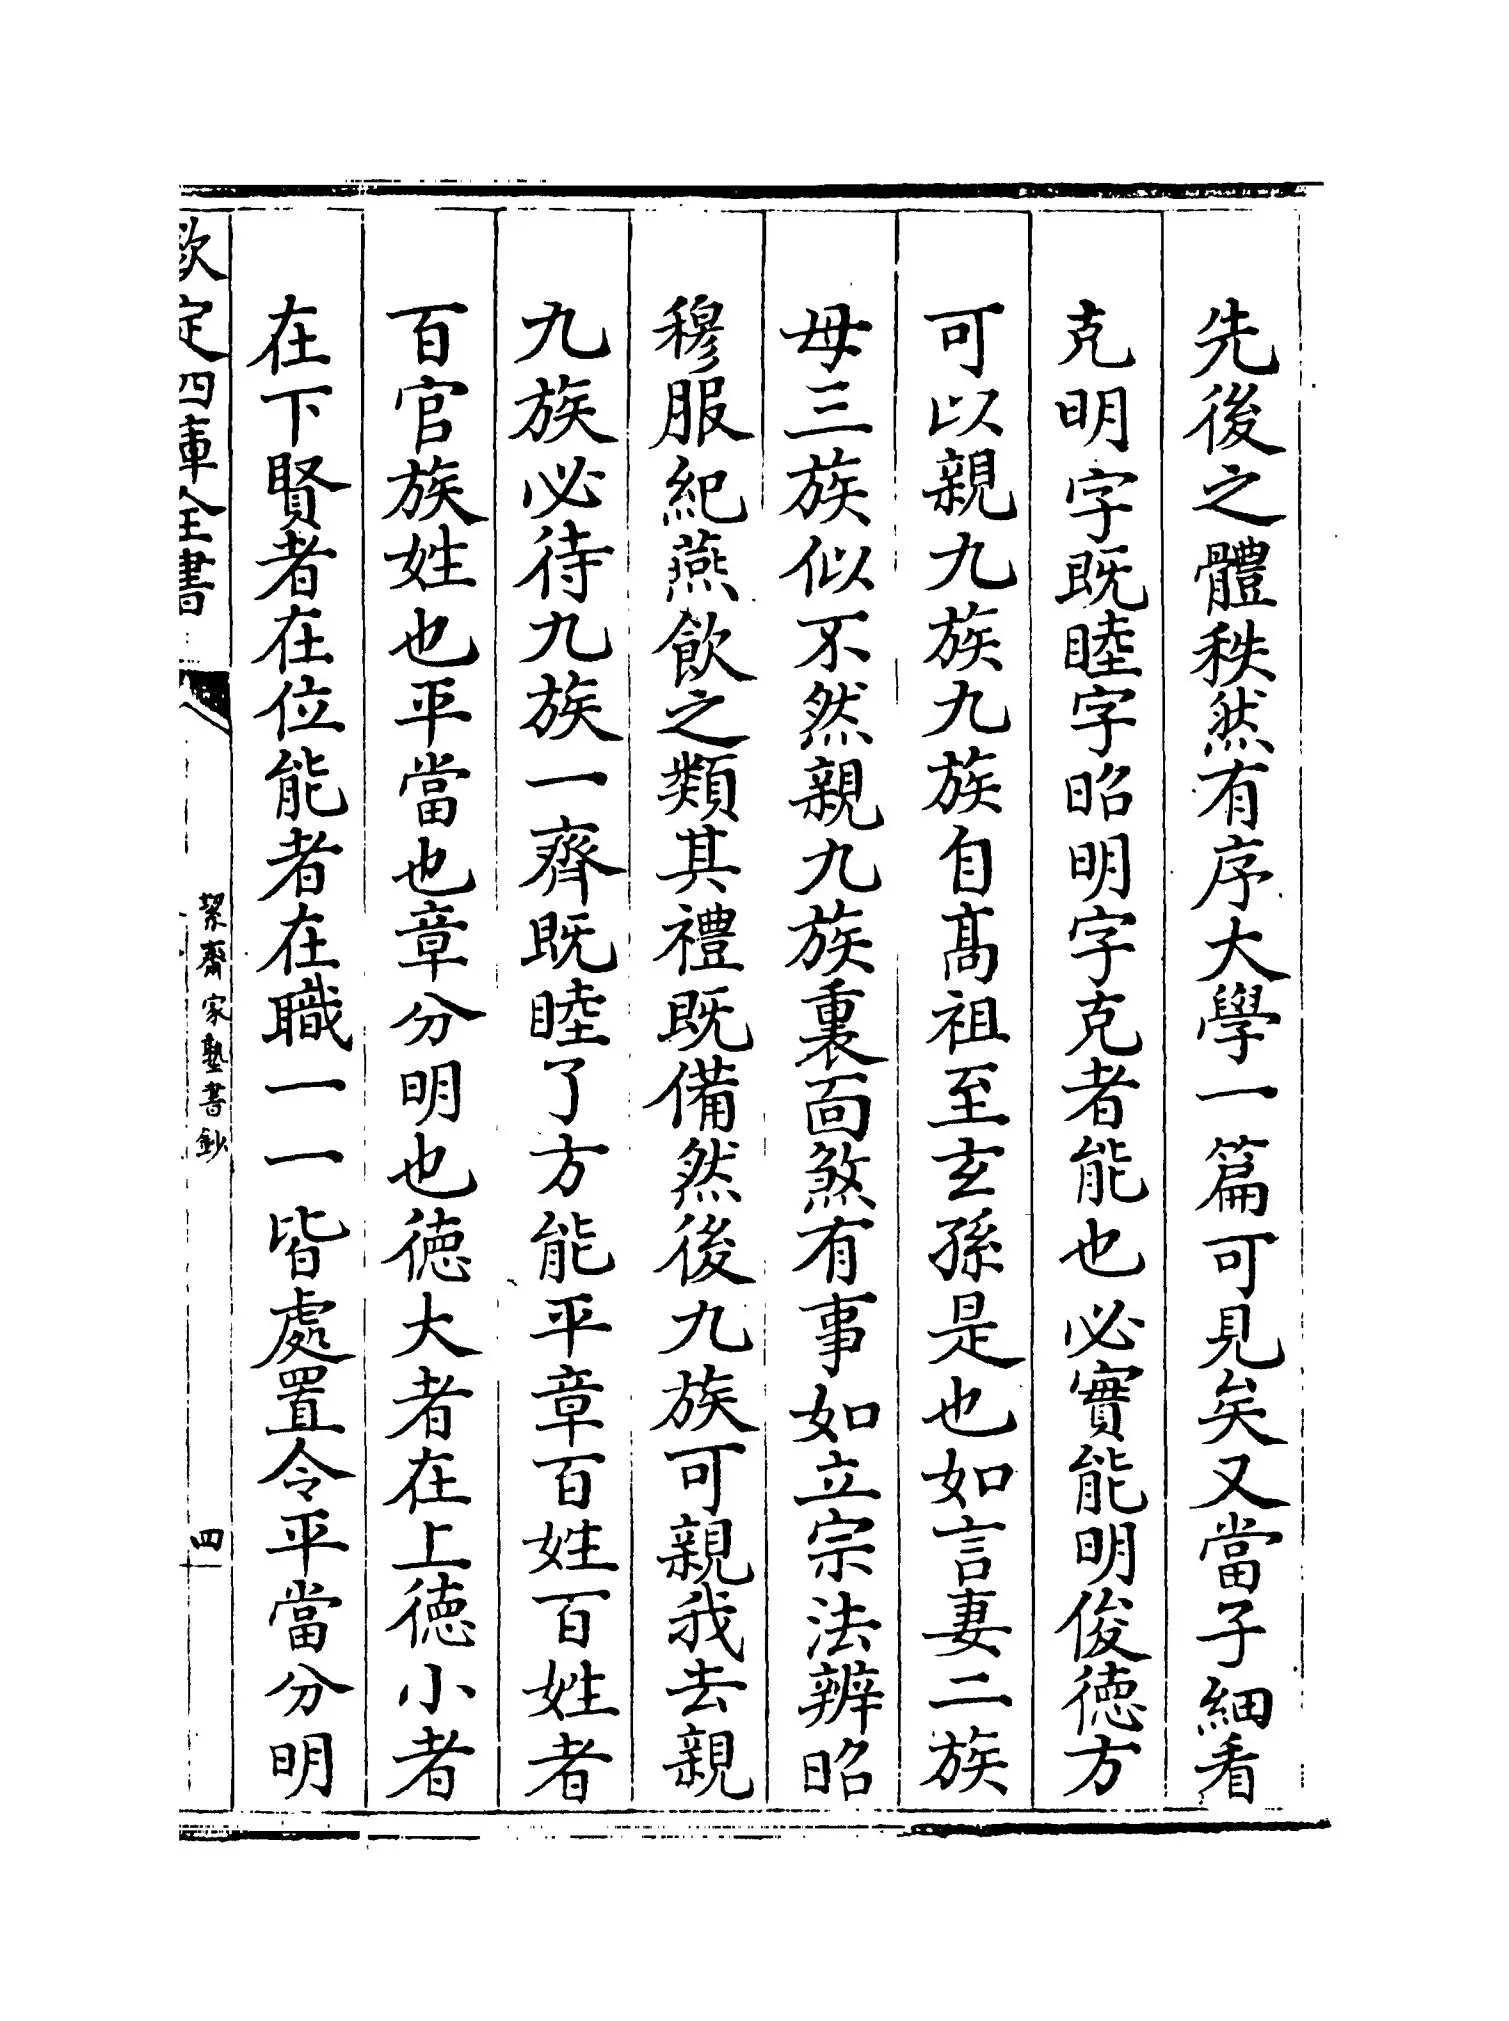 先後之體秩然有序大學一篇可見矣又當子細看
克明字既睦字昭明字克者能也必實能明俊徳方
可以親九族九族自髙祖至玄孫是也如言妻二族
母三族似不然親九族裏面煞有事如立宗法辨昭
穆服紀燕飲之類其禮既備然後九族可親我去親
九族必待九族一齊既睦了方能平章百姓百姓者
百官族姓也平當也章分明也徳大者在上徳小者
在下賢者在位能者在職一一皆處置令平當分明
欽定四庫全書
絜齋家塾書鈔
四